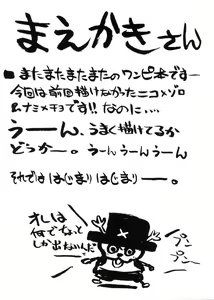 まえかきさん
■またまたまたまたのワンピ本です―
今回は前回描けなかったニコ×ゾロ
&ナミ×チョです!! なのに…
うーん、うまく描けてるか
どうかー。うーんうーんうーん
それでははじまりはじまりー。
オレは
何でちょっと
しか出ないんだ
プンプン